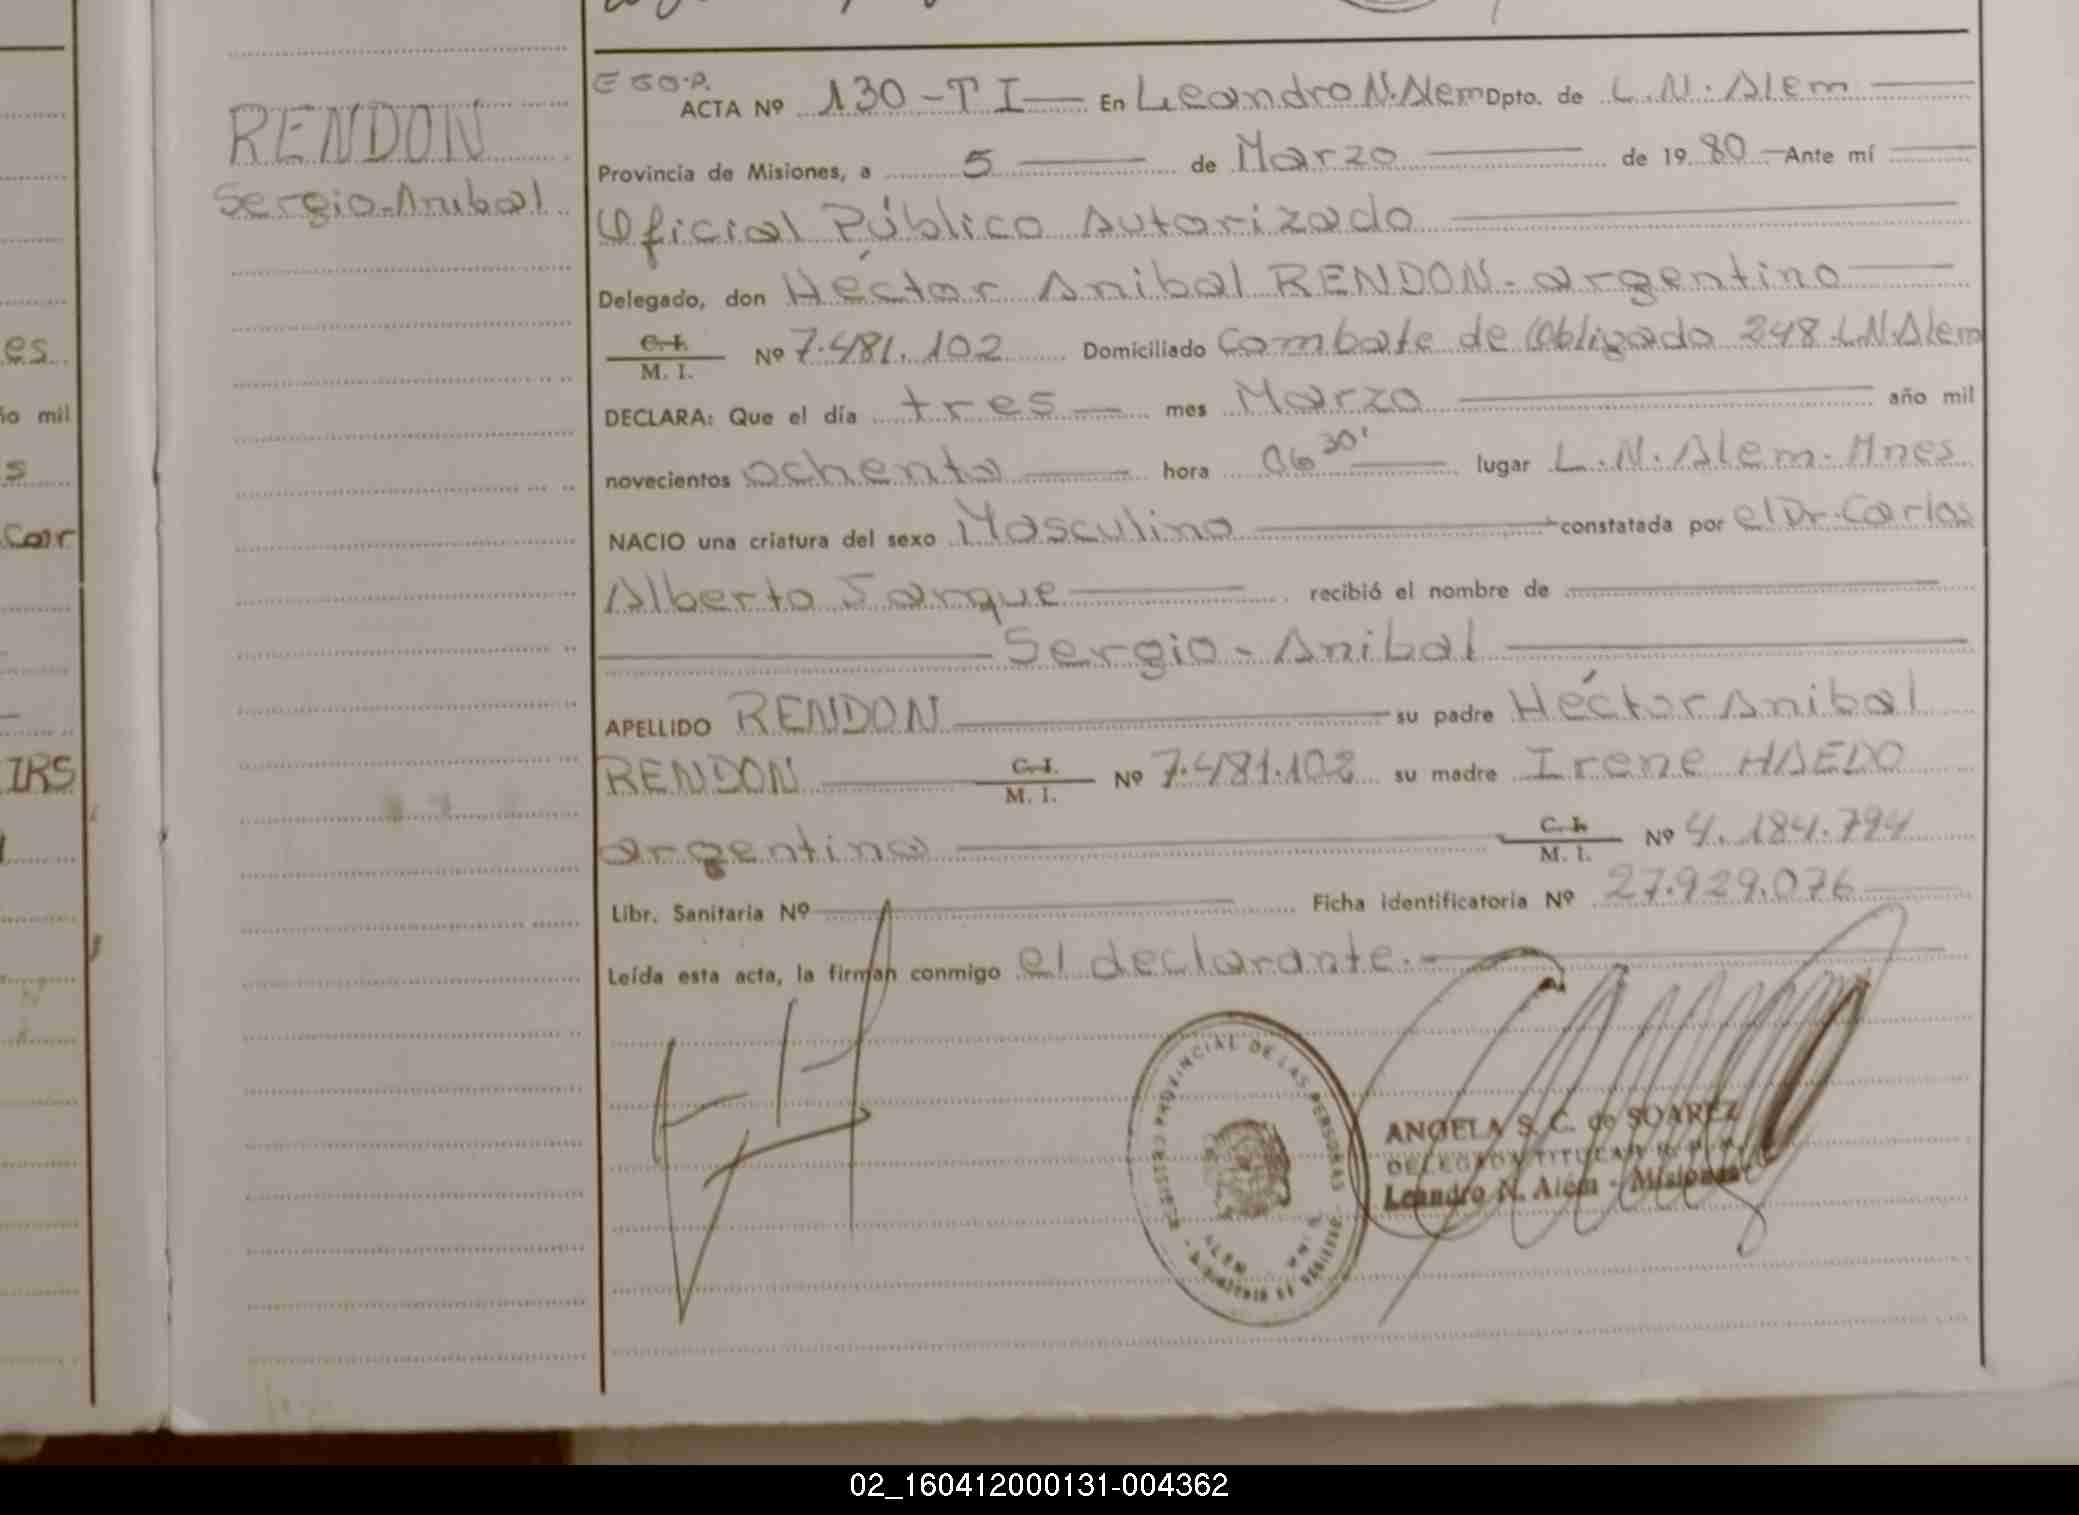 es
ño mil
s
Car
IRS
RENDON
Sergio-Anibal
ACTA Nº 130-T I En Leandro N. Alem Dpto. de L.N. Alem
Provincia de Misiones, a 5 de Marzo de 19 80 Ante mí
Oficial Público Autorizado
Delegado, don Héctor Anibal RENDON- argentino
C.I. M. I. Nº 7.481.102 Domiciliado Combate de Obligado 248.L.N.Alem
DECLARA: Que el día tres mes Marzo año mil
novecientos ochenta hora 06 30' lugar L.N. Alem. Mnes
NACIO una criatura del sexo Masculino constatada por el Dr. Carlos
Alberto Sarque recibió el nombre de
Sergio-Anibal
APELLIDO RENDON su padre Héctor Anibal
RENDON C.I. M. I. Nº 7.481.102 su madre Irene HAEDO
argentina C.I. M. I. Nº 4.184.794
Libr. Sanitaria Nº Ficha identificatoria Nº 27.929.076
Leída esta acta, la firman conmigo el declarante.
REGISTRO PROVINCIAL DE LAS PERSONAS
ALEM
ANGELA S. C. de SOAREZ
DELEGADA TITULAR
Leandro N. Alem - Misiones
02_160412000131-004362